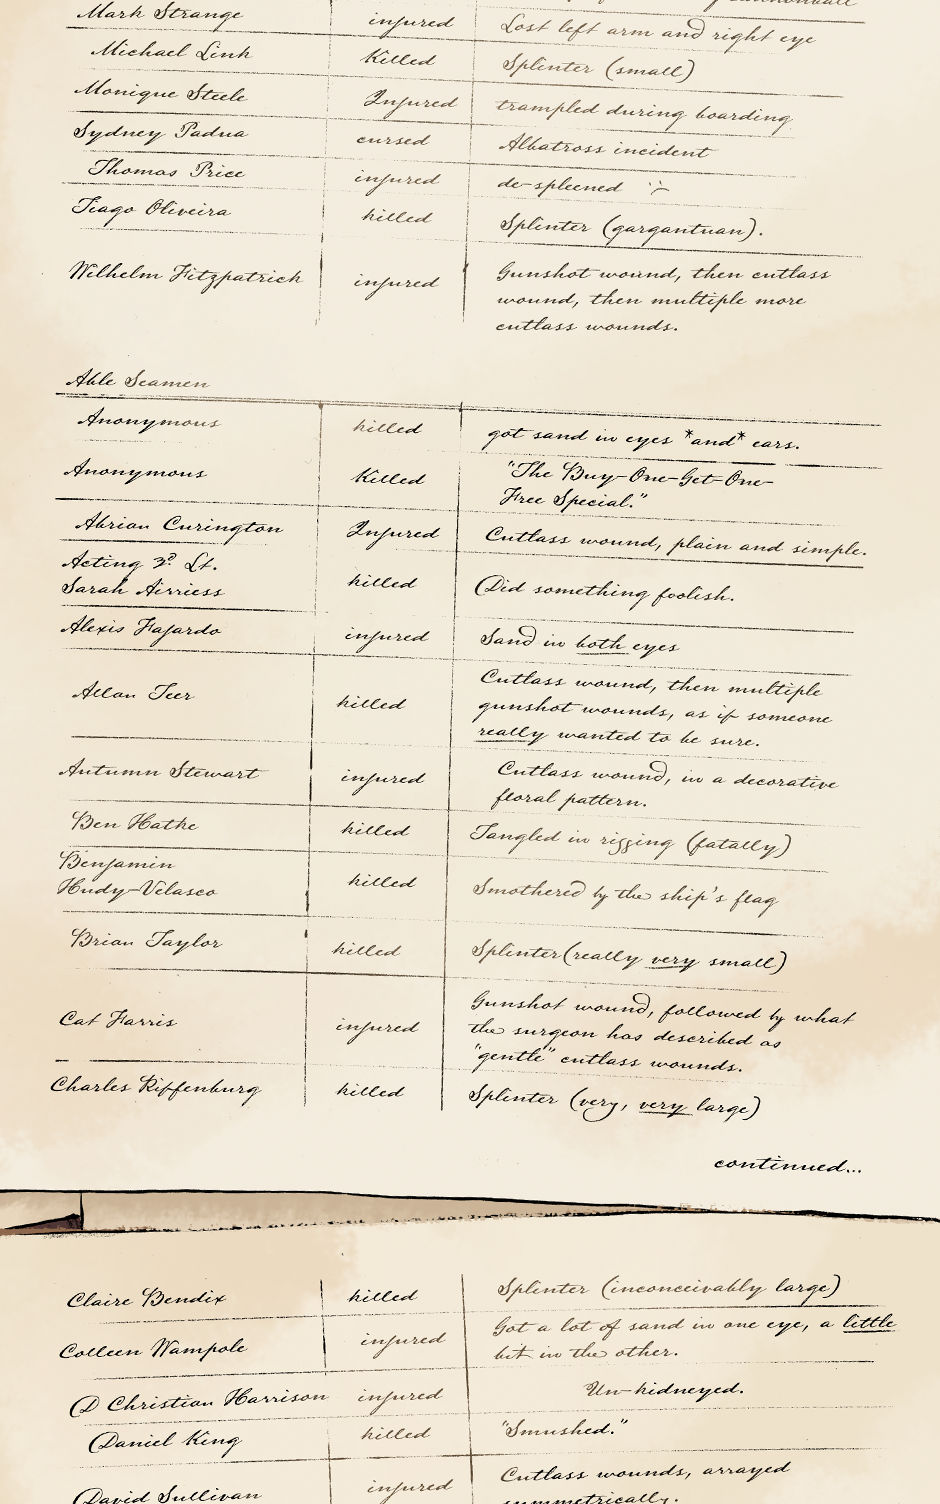 Mark Strange injured Lost left arm and right eye
Michael Link Killed Splinter (small)
Monique Steele Injured trampled during boarding
Sydney Padua cursed Albatross incident
Thomas Price injured de-spleened :~
Tiago Oliveira killed Splinter (gargantuan).
Wilhelm Fitzpatrick injured Gunshot wound, then cutlass
wound, then multiple more
cutlass wounds.
Able Seamen
Anonymous killed got sand in eyes *and* ears.
Anonymous Killed "The Buy-One-Get-One-
Free Special."
Abrian Curington Injured Cutlass wound, plain and simple.
Acting 3rd Lt.
Sarah Airriess killed Did something foolish.
Alexis Fajardo injured Sand in both eyes
Allan Teer killed Cutlass wound, then multiple
gunshot wounds, as if someone
really wanted to be sure.
Autumn Stewart injured Cutlass wound, in a decorative
floral pattern.
Ben Hatke killed Tangled in rigging (fatally)
Benjamin
Hudy-Velasco killed Smothered by the ship's flag
Brian Taylor killed Splinter (really very small)
Cat Farris injured Gunshot wound, followed by what
the surgeon has described as
"gentle" cutlass wounds.
Charles Riffenburg killed Splinter (very, very large)
continued...
Claire Bendix killed Splinter (inconceivably large)
Colleen Wampole injured Got a lot of sand in one eye, a little
bit in the other.
D Christian Harrison injured Un-kidneyed.
Daniel King killed "Smushed."
David Sullivan injured Cutlass wounds, arrayed
symmetrically.